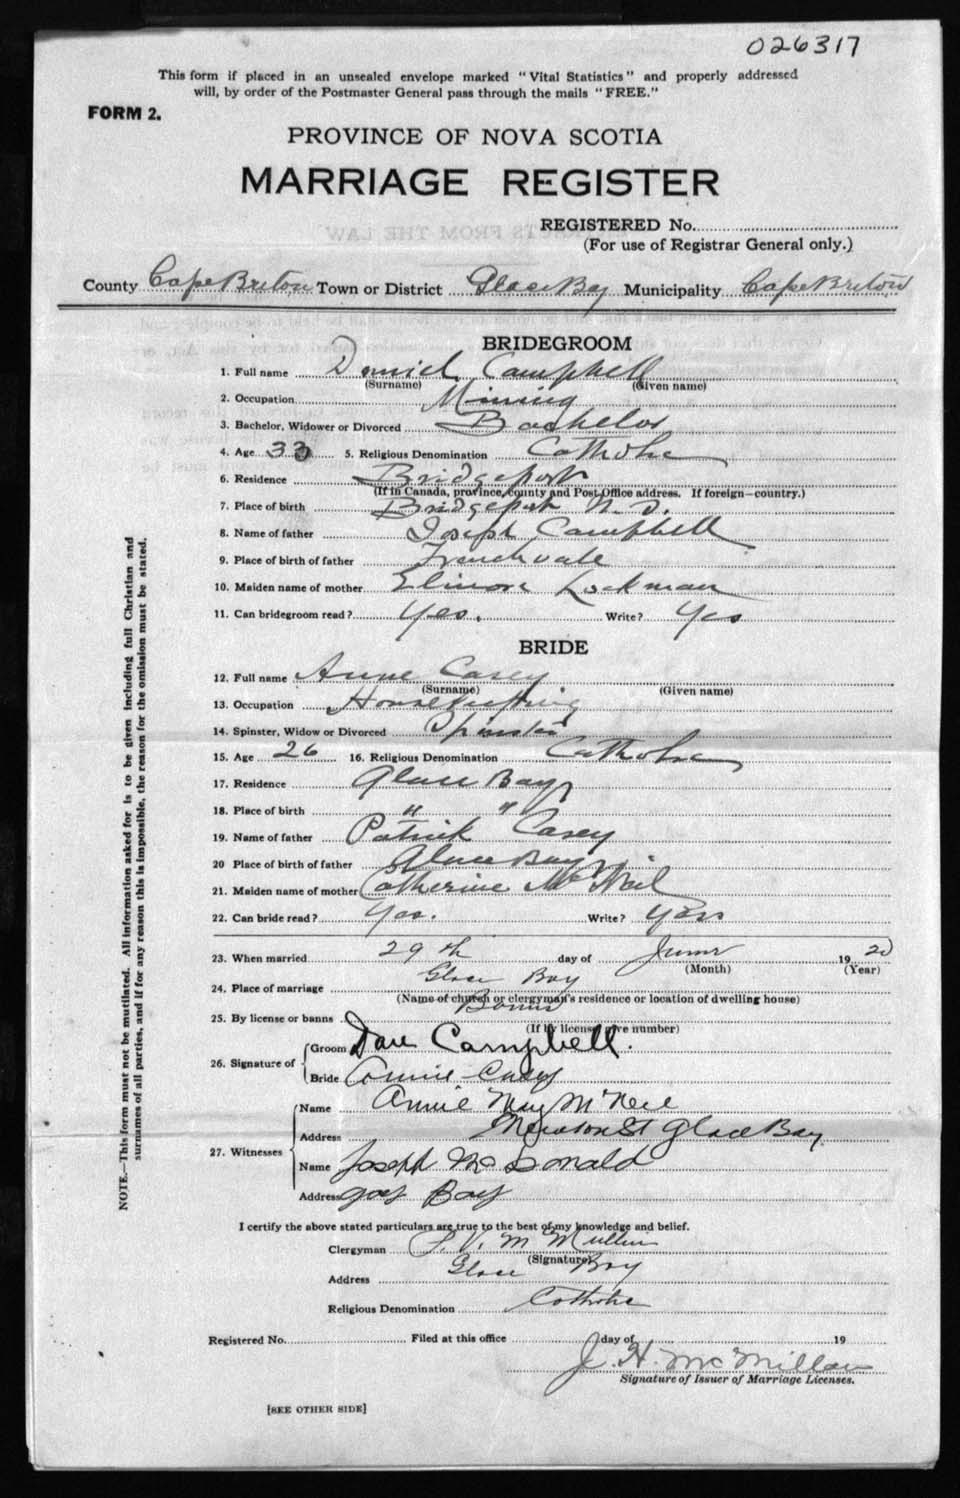 026317
This form if placed in an unsealed envelope marked "Vital Statistics" and properly addressed
will, by order of the Postmaster General pass through the mails "FREE."
FORM 2.
PROVINCE OF NOVA SCOTIA
MARRIAGE REGISTER
REGISTERED No.
(For use of Registrar General only.)
County Cape Breton Town or District Glace Bay Municipality Cape Breton
BRIDEGROOM
1. Full name Daniel Campbell
(Surname) (Given name)
2. Occupation Mining
3. Bachelor, Widower or Divorced Bachelor
4. Age 33 5. Religious Denomination Catholic
6. Residence Bridgeport
(If in Canada, province, county and Post Office address. If foreign—country.)
7. Place of birth Bridgeport N. S.
8. Name of father Joseph Campbell
9. Place of birth of father Frenchvale
10. Maiden name of mother Elinore Lockman
11. Can bridegroom read? Yes. Write? Yes
BRIDE
12. Full name Anne Casey
(Surname) (Given name)
13. Occupation Housekeeping
14. Spinster, Widow or Divorced Spinster
15. Age 26 16. Religious Denomination Catholic
17. Residence Glace Bay
18. Place of birth " "
19. Name of father Patrick Casey
20 Place of birth of father Glace Bay
21. Maiden name of mother Catherine McNeil
22. Can bride read? Yes. Write? Yes
23. When married 29th day of June 1920
(Month) (Year)
24. Place of marriage Glace Bay
(Name of church or clergyman's residence or location of dwelling house)
25. By license or banns Banns
(If by license give number)
26. Signature of
Groom Dan Campbell.
Bride Annie Casey
27. Witnesses
Name Annie May McNeil
Address St Glace Bay
Name Joseph McDonald
Address Bay
I certify the above stated particulars are true to the best of my knowledge and belief.
Clergyman McMullin
(Signature)
Address Glace Bay
Religious Denomination Catholic
Registered No. Filed at this office day of 19
J. H. McMillan
Signature of Issuer of Marriage Licenses.
[SEE OTHER SIDE]
NOTE.—This form must not be mutilated. All information asked for is to be given including full Christian and
surnames of all parties, and if for any reason this is impossible, the reason for the omission must be stated.